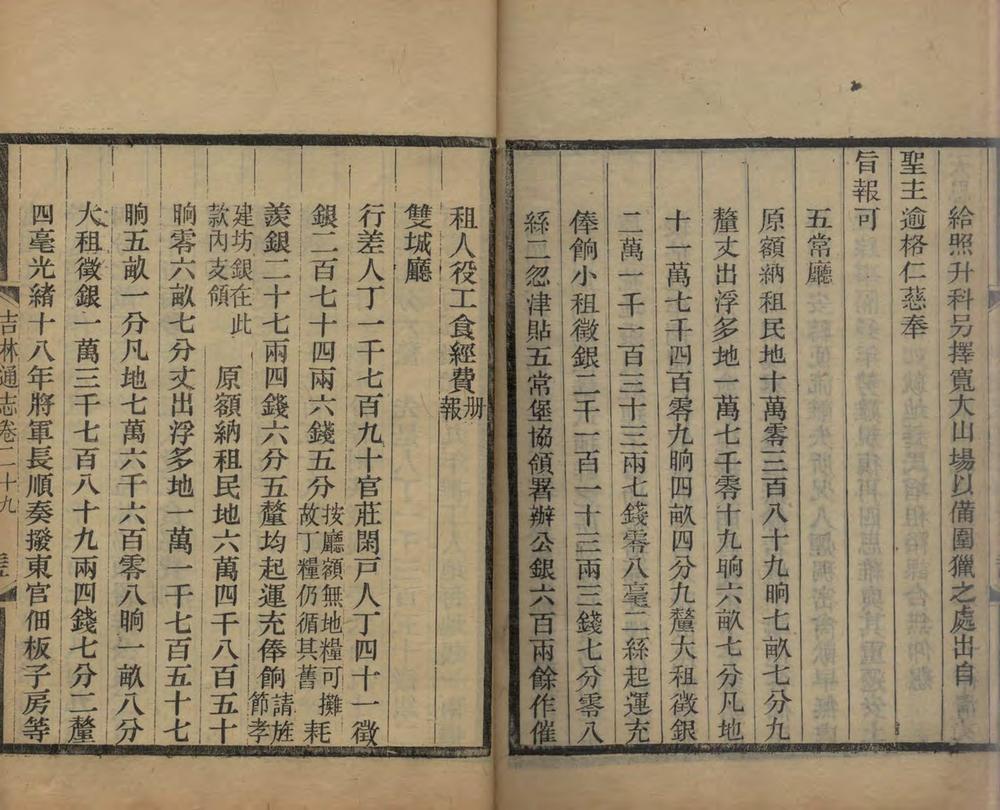 給照升科另擇寬大山場以備圍獵之處出自
聖主逾格仁慈奉
旨報可
五常廳
原額納租民地十萬零三百八十九晌七畝七分九
釐丈出浮多地一萬七千零十九晌六畝七分凡地
十一萬七千四百零九晌四畝四分九釐大租徵銀
二萬一千一百三十三兩七錢零八毫二絲起運充
俸餉小租徵銀二千一百一十三兩三錢七分零八
絲二忽津貼五常堡協領署辦公銀六百兩餘作催
租人役工食經費冊報
雙城廳
行差人丁一千七百九十官莊閑戸人丁四十一徵
銀二百七十四兩六錢五分按廳額無地糧可攤故丁糧仍循其舊耗
羨銀二十七兩四錢六分五釐均起運充俸餉請旌節孝
建坊銀在此款內支領原額納租民地六萬四千八百五十
晌零六畝七分丈出浮多地一萬一千七百五十七
晌五畝一分凡地七萬六千六百零八晌一畝八分
大租徵銀一萬三千七百八十九兩四錢七分二釐
四毫光緒十八年將軍長順奏撥東官佃板子房等
吉林通志卷二十九